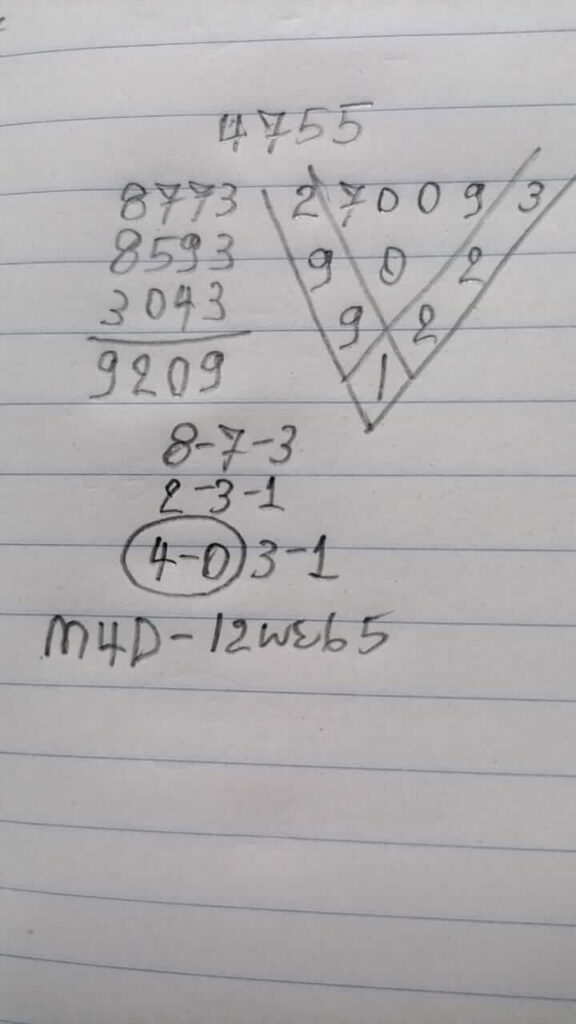 4755
8773 2 7 0 0 9 3
8593 9 0 2
3043 9 2
9209 1
8-7-3
2-3-1
4-0 3-1
M4D-12WEB5